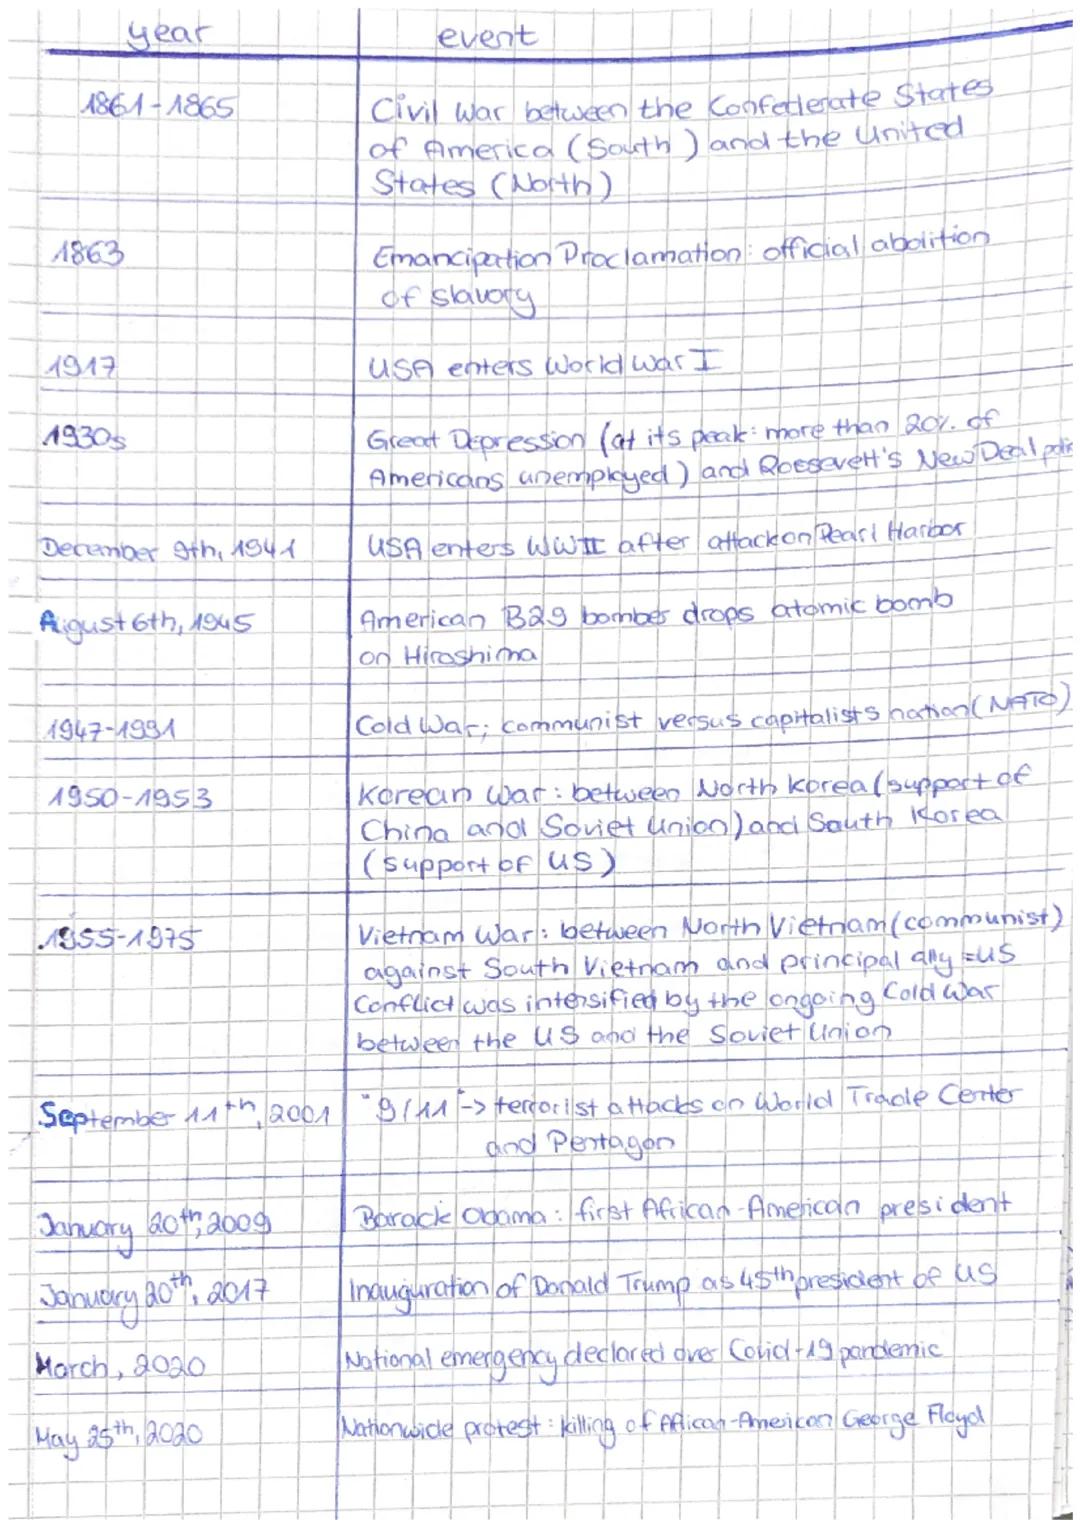 year event
1861-1865 Civil War between the Confederate States
of America (South) and the United
States (North)
1863 Emancipation Proclamation: official abolition
of slavory
1917 USA enters World War I
1930s Great Depression (at its peak: more than 20% of
Americans unemployed) and Roesevelt's New Deal
December 9th, 1941 USA enters WWII after attack on Pearl Harbor
August 6th, 1945 American B29 bomber drops atomic bomb
on Hiroshima
1947-1991 Cold War; communist versus capitalists nation (NATO)
1950-1953 Korean War: between North Korea (support of
China and Soviet Union) and South Korea
(support of US)
1955-1975 Vietnam War: between North Vietnam (communist)
against South Vietnam and principal ally =US
Conflict was intensified by the ongoing Cold War
between the US and the Soviet Union
September 11th, 2001 "9/11"-> terrorist attacks on World Trade Center
and Pentagon
January 20th, 2009 Barack Obama: first African-American president
January 20th, 2017 Inauguration of Donald Trump as 45th president of US
March, 2020 National emergency declared over Covid-19 pandemic
May 25th, 2020 Nationwide protest: killing of African-American George Floyd